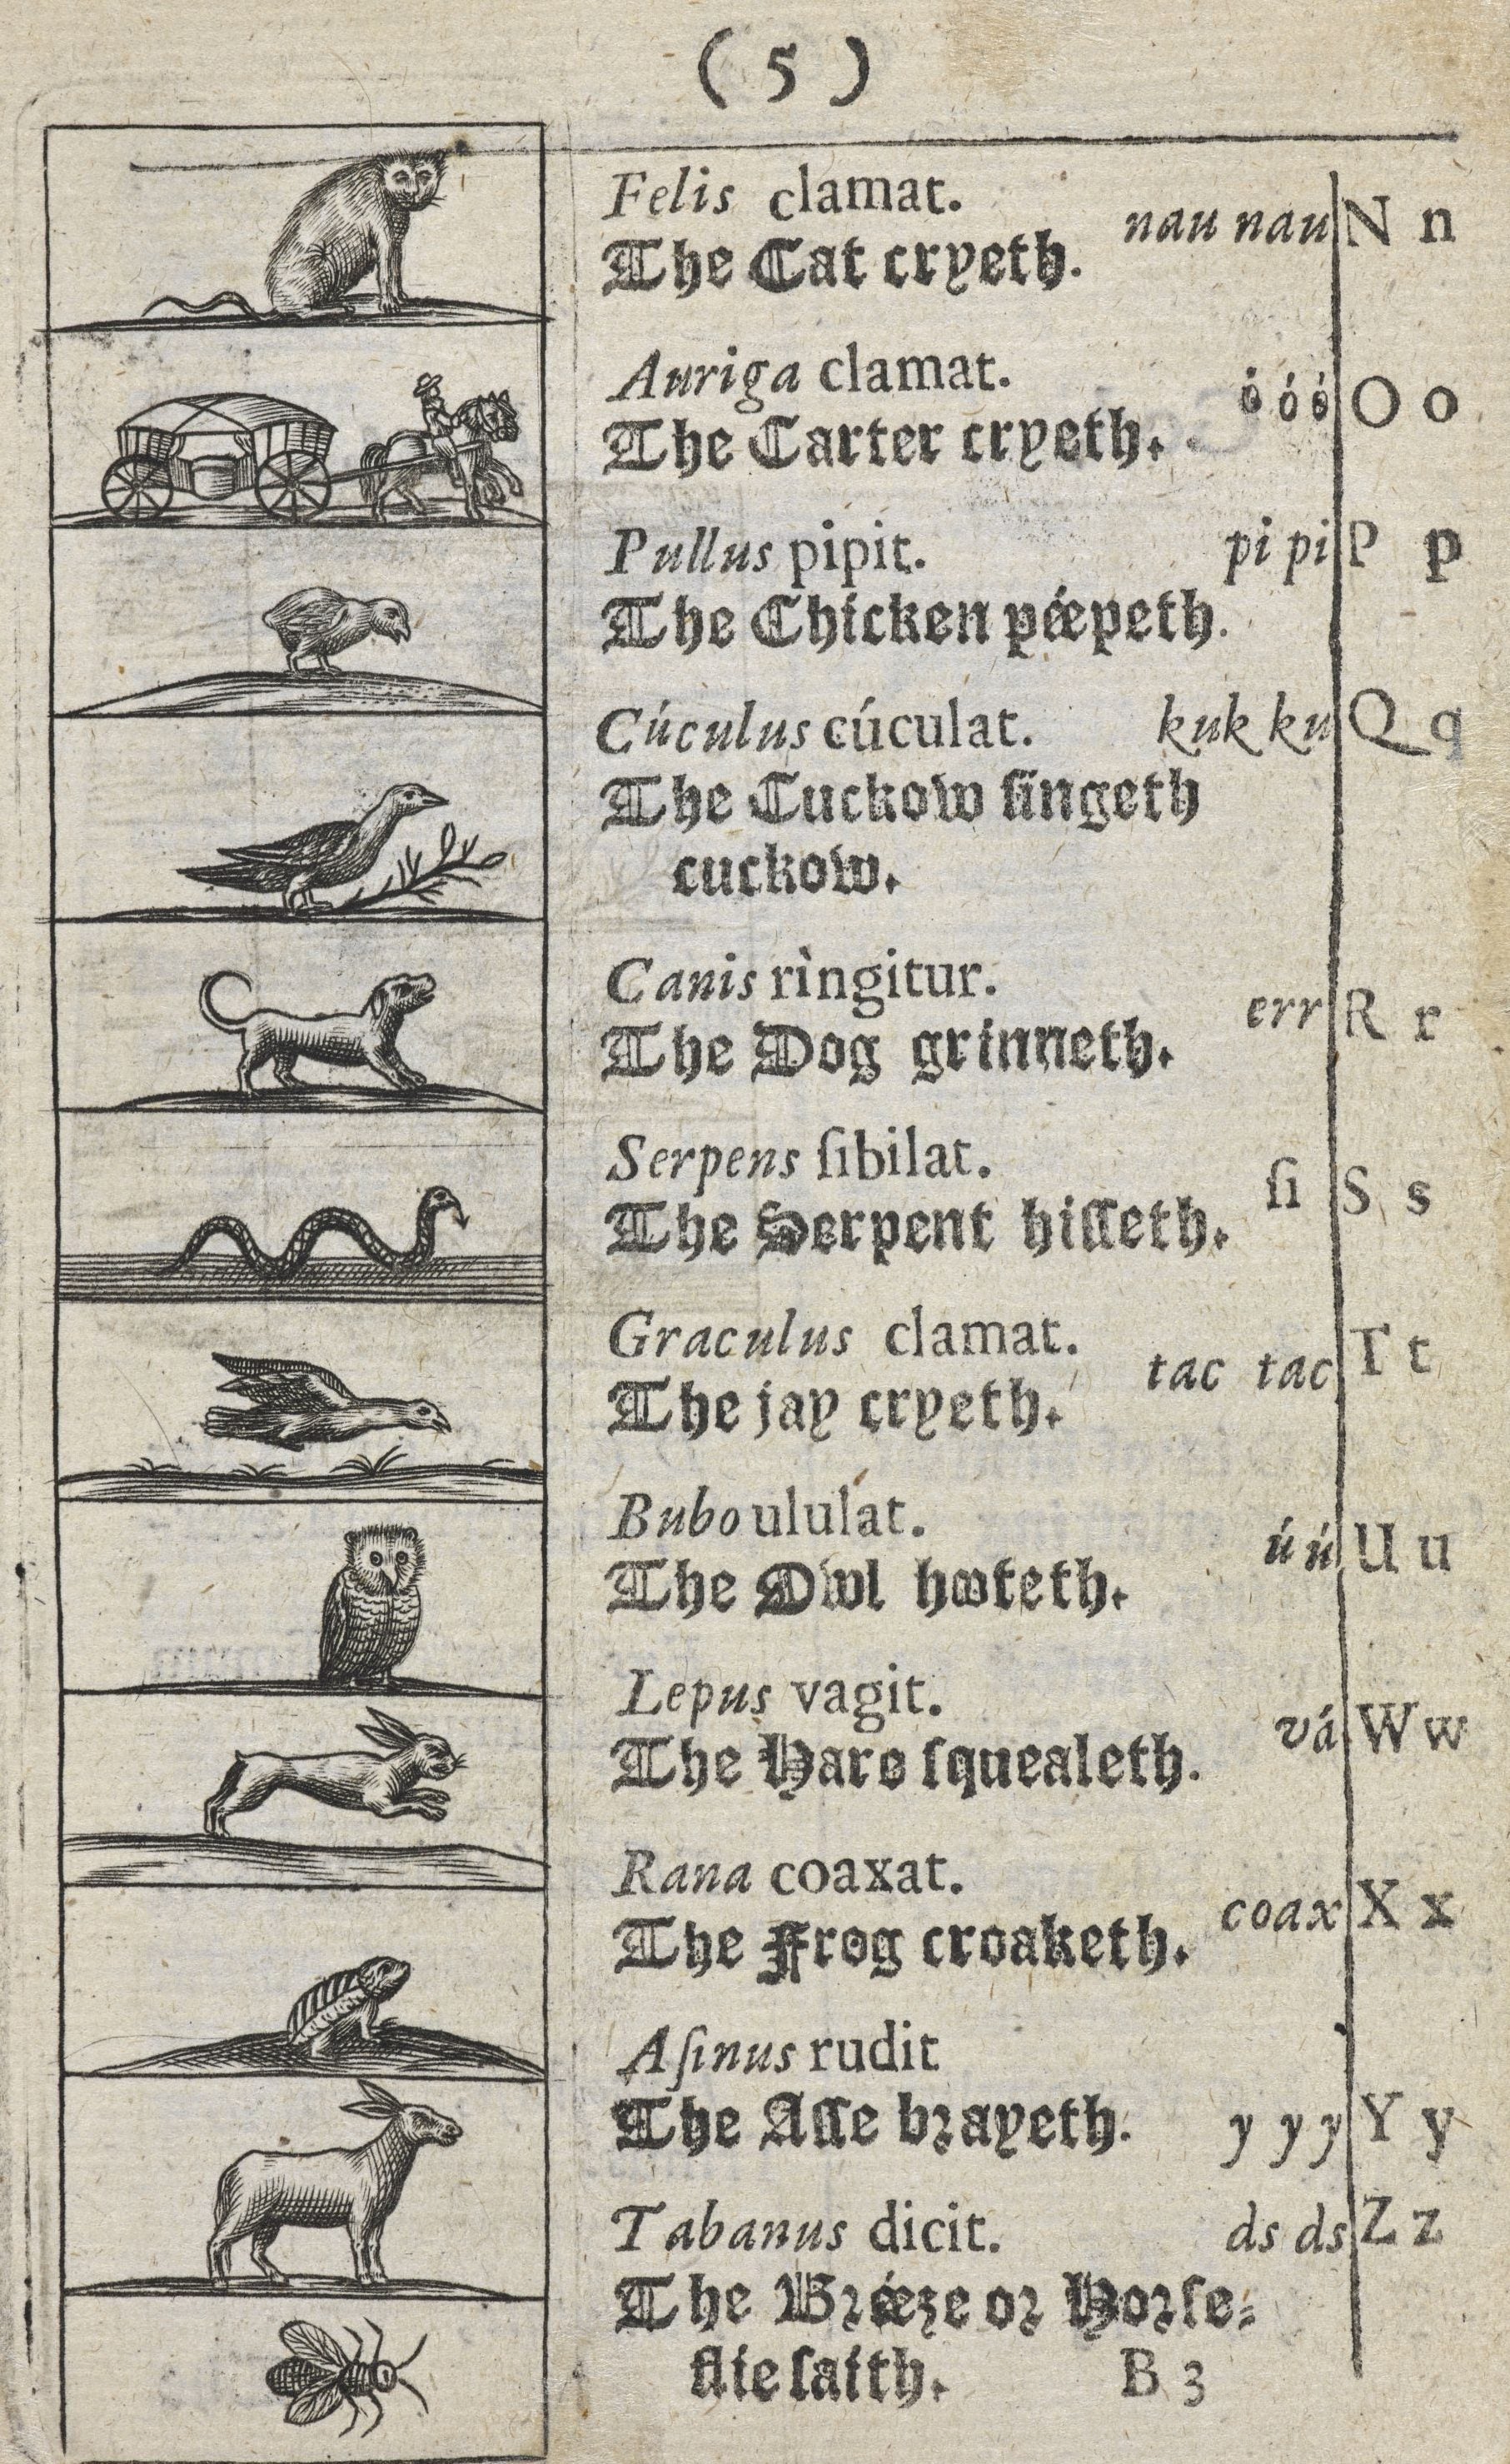 ( 5 )
Felis clamat. nau nau N n
The Cat cryeth.
Auriga clamat. ó ó ó O o
The Carter cryeth.
Pullus pipit. pi pi P p
The Chicken péepeth.
Cúculus cúculat. kuk ku Q q
The Cuckow ſingeth
cuckow.
Canis rìngitur. err R r
The Dog grinneth.
Serpens ſibilat. ſi S s
The Serpent hiſſeth.
Graculus clamat. tac tac T t
The jay cryeth.
Bubo ululat. ú ú U u
The Owl hooteth.
Lepus vagit. vá W w
The Hare ſquealeth.
Rana coaxat. coax X x
The Frog croaketh.
Aſinus rudit
The Aſſe brayeth. y y y Y y
Tabanus dicit. ds ds Z z
The Bréeze or Horſe-
flie ſaith. B 3